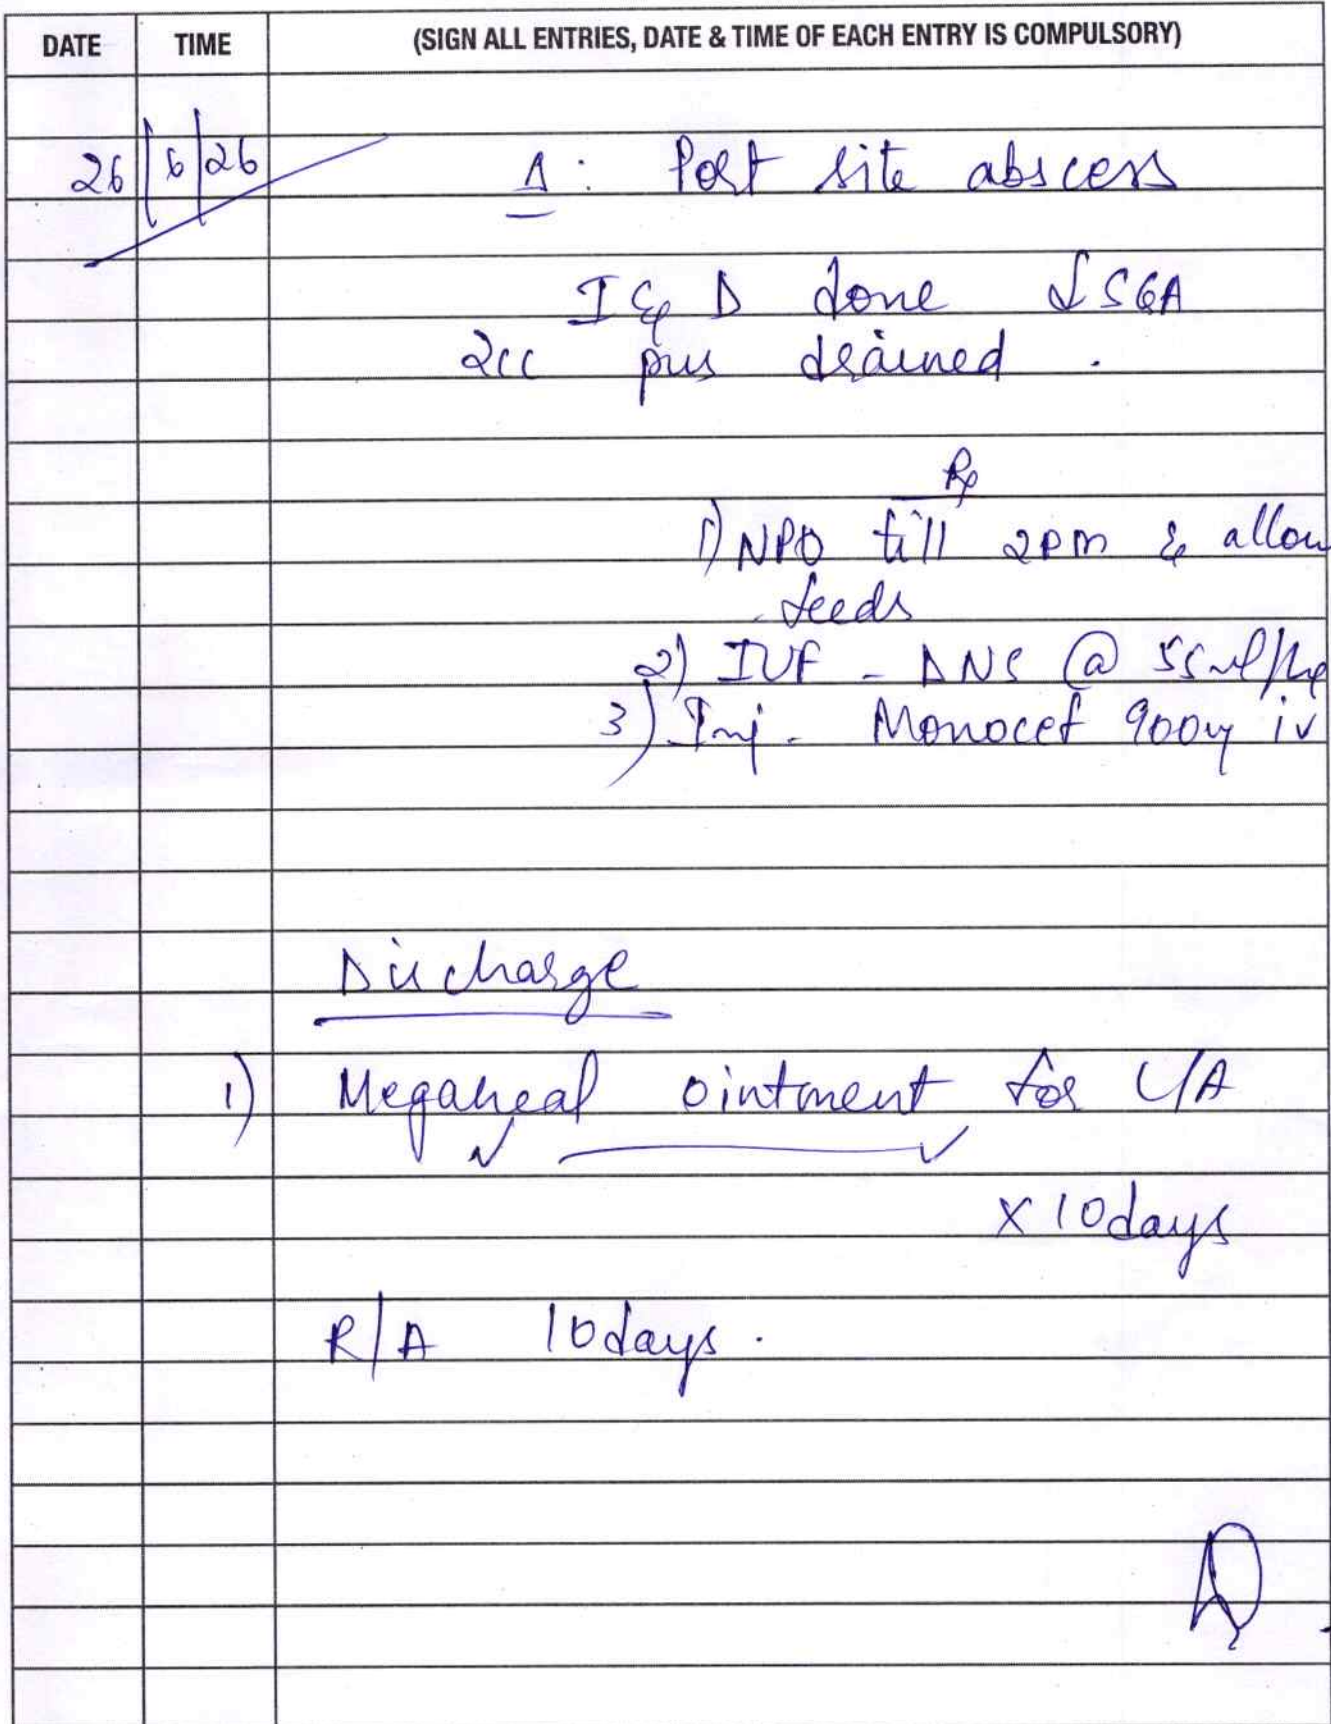 DATE TIME (SIGN ALL ENTRIES, DATE & TIME OF EACH ENTRY IS COMPULSORY)
26/6/26
Δ: Port site abscess
I & D done SGA
2cc pus drained.
Rp
1) NPO till 2pm & allow
feeds
2) IVF - DNS @ 55ml/hr
3) Inj. Monocef 900mg iv
Discharge
1) Megaheal ointment for L/A
x 10days
R/A 10days.